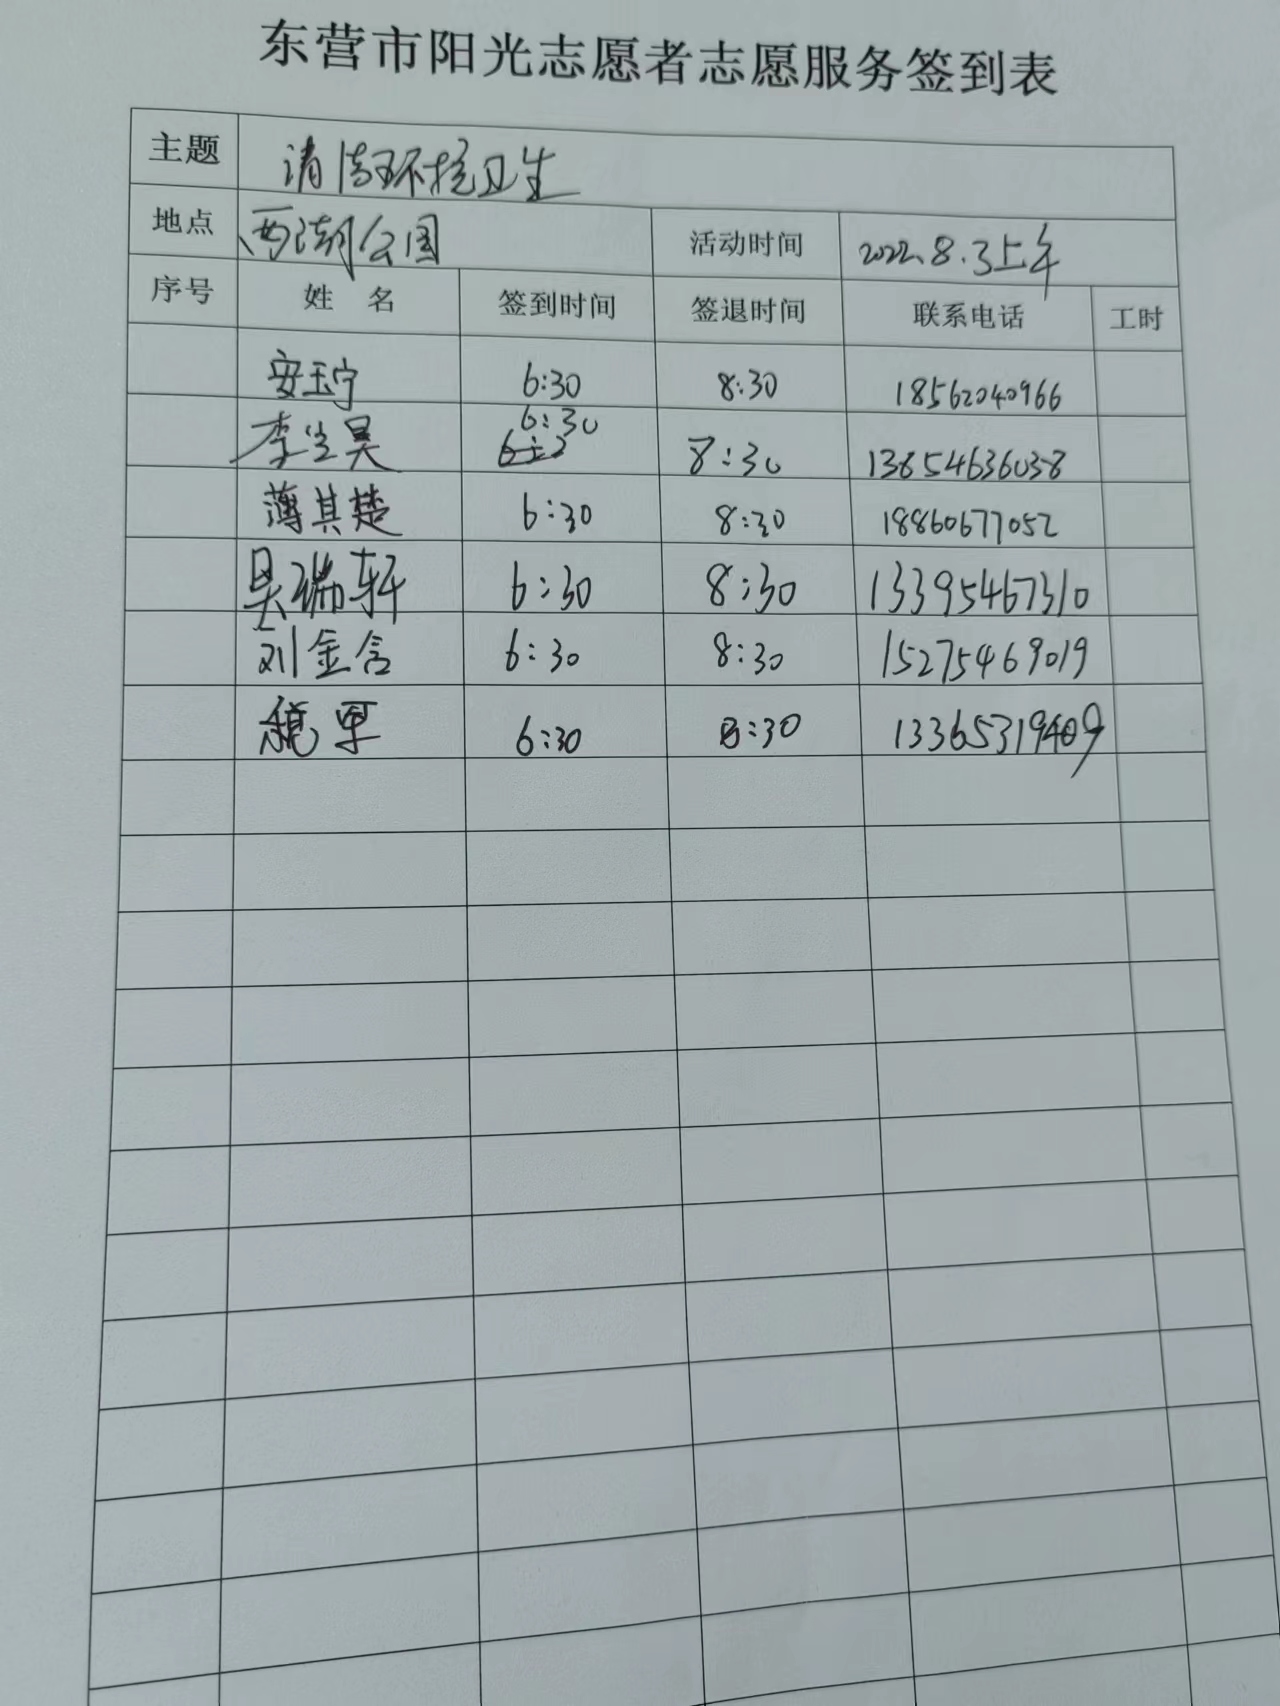 东营市阳光志愿者志愿服务签到表
主题 清洁环境卫生
地点 西湖公园 活动时间 2022.8.3上午
序号 姓 名 签到时间 签退时间 联系电话 工时
安玉宁 6:30 8:30 18562040966
6:30
李当昊 8:30 13854636038
薄其楚 6:30 8:30 18860677052
吴瑞轩 6:30 8:30 13395467310
刘金含 6:30 8:30 15275469019
6:30 8:30 13365319409